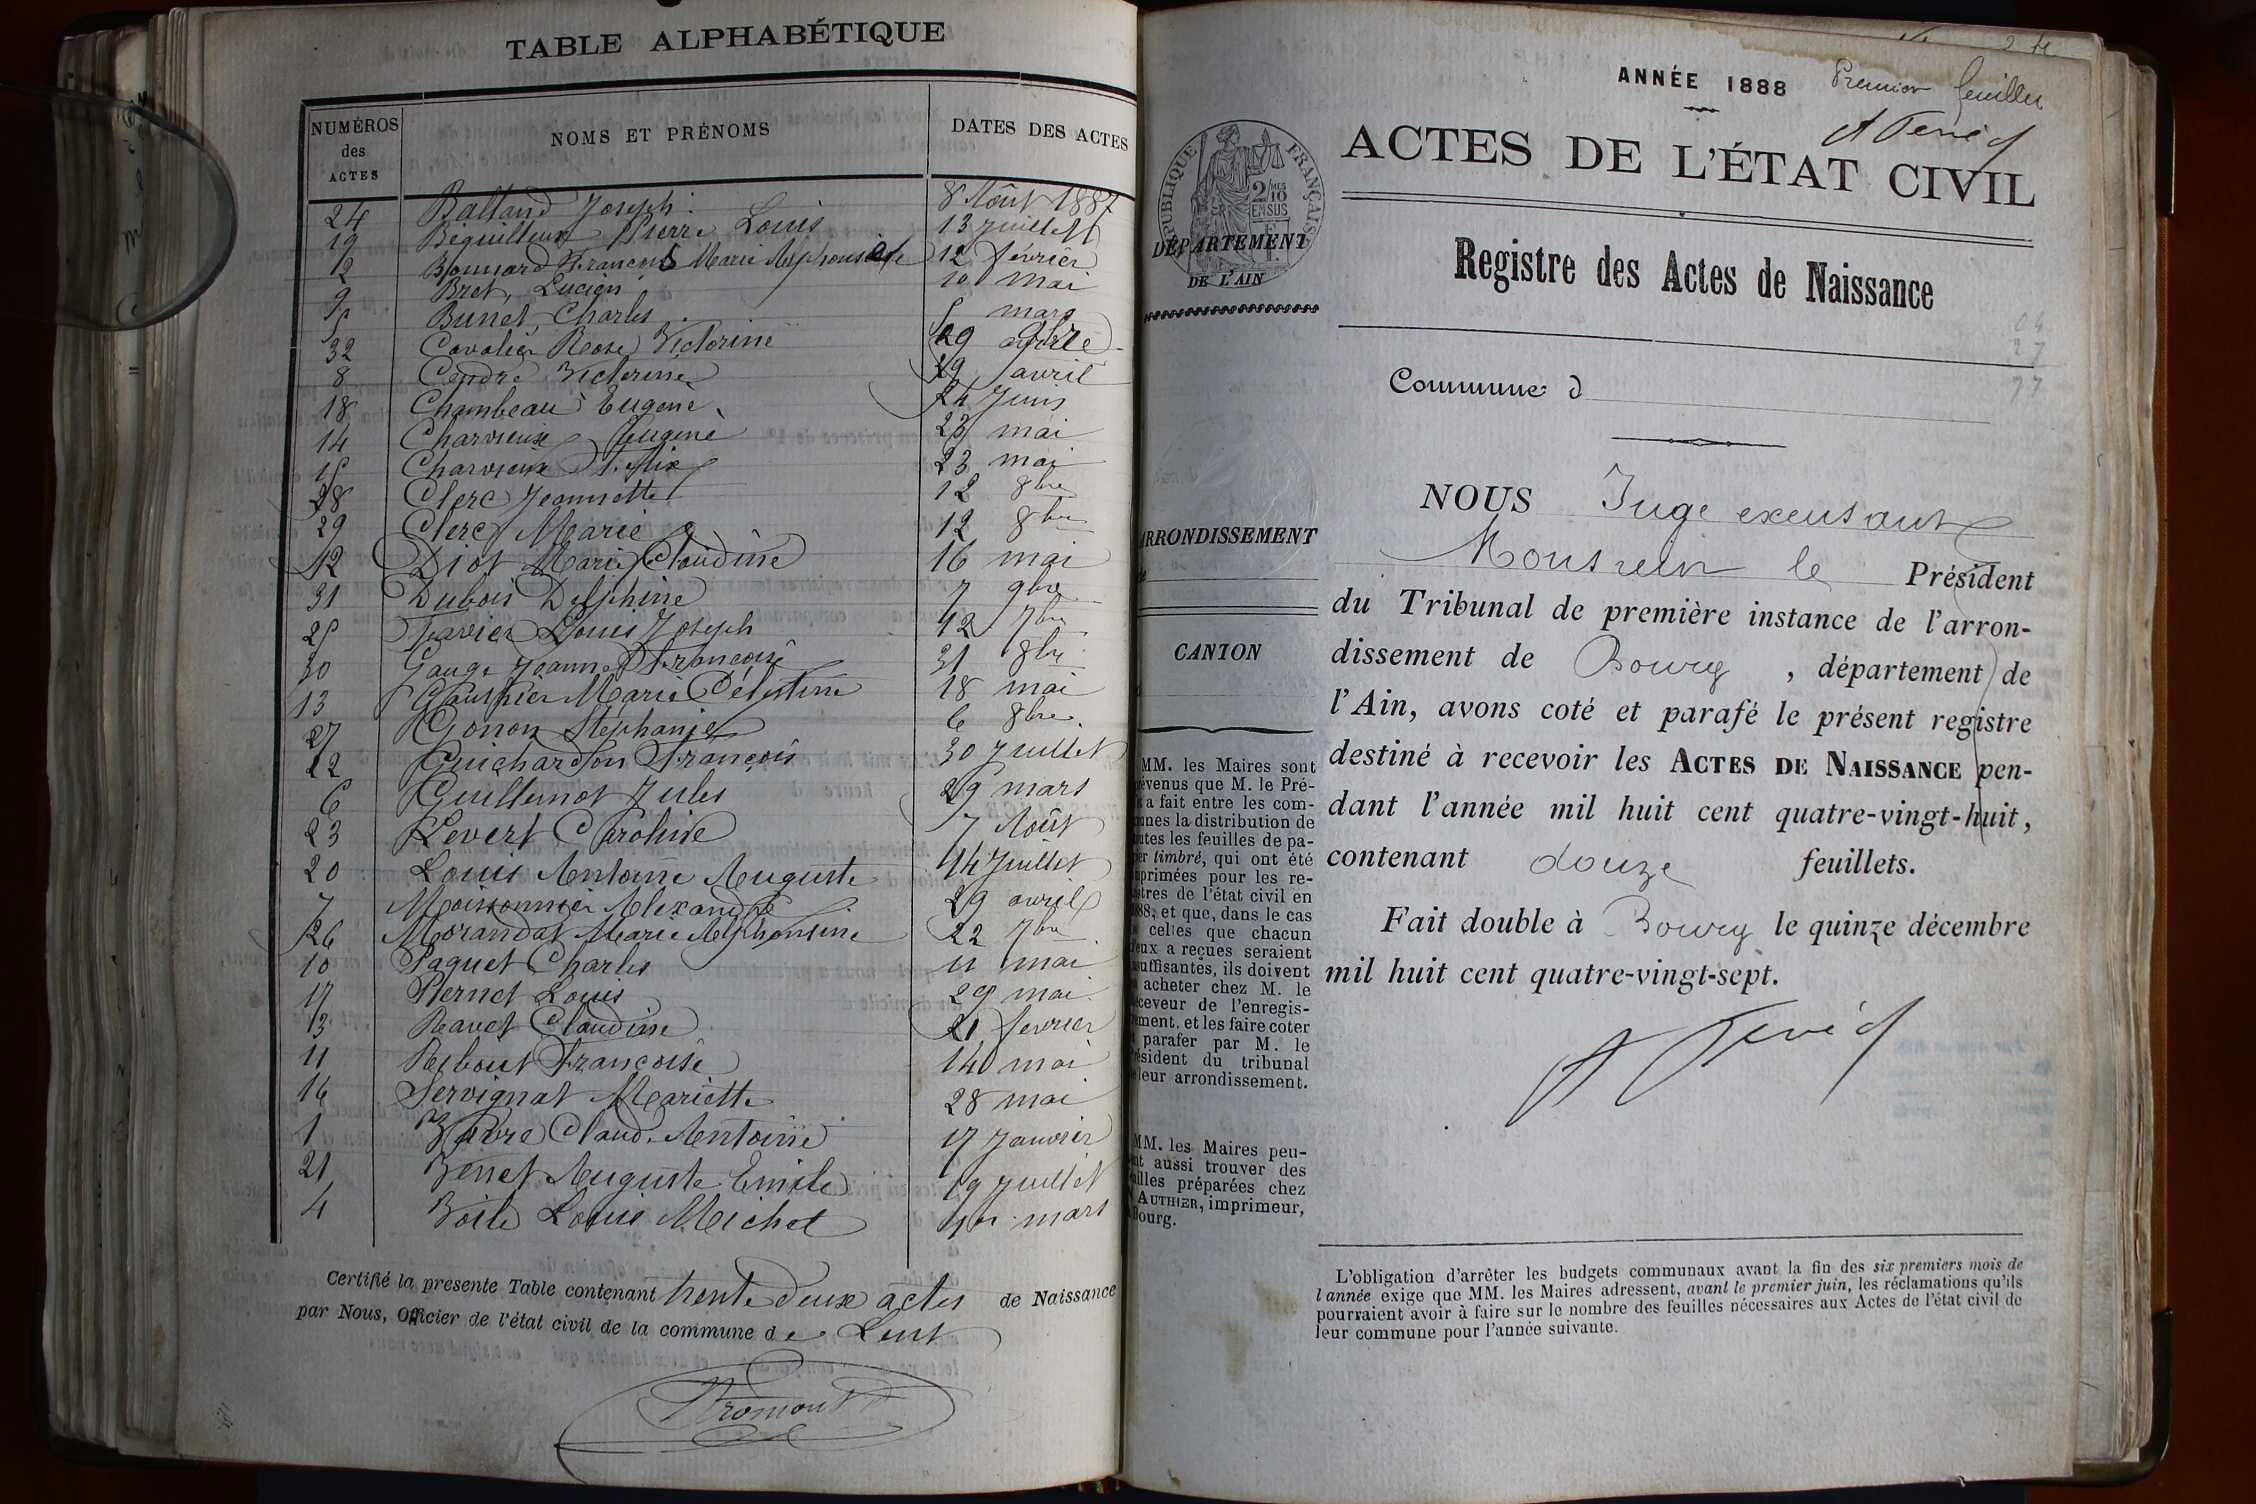 TABLE ALPHABÉTIQUE
NUMÉROS des ACTES
NOMS ET PRÉNOMS
DATES DES ACTES
24 Balland Joseph 8 Août 1887
19 Béguilleux Pierre Louis 13 Juillet
2 Bonnard François Marie Alphonse 12 février
9 Bret, Lucien 10 mai
5 Bunet, Charles 5 mars
32 Cavalier Rose Victorine 29 9bre
8 Cendre Victorine 29 avril
18 Chambeau Eugene 24 Juin
14 Charvieux Eugene 23 mai
15 Charvieux Félix 23 mai
28 Clerc Jeannette 12 8bre
29 Clerc Marie 12 8bre
12 Diot Marie Claudine 16 mai
31 Dubois Delphine 7 9bre
25 Favier Louis Joseph 12 7bre
30 Gauge Jeanne Françoise 31 8bre
13 Gauthier Marie Célestine 18 mai
27 Gonon Stéphanie 6 8bre
22 Guichardon François 30 Juillet
6 Guillemot Jules 29 mars
23 Levert Caroline 7 Août
20 Louis Antoine Auguste 14 Juillet
7 Moissonnier Alexandre 29 avril
26 Morandat Marie Alphonsine 22 7bre
10 Paquet Charles 11 mai
17 Pernet Louis 29 mai
3 Ravet Claudine 21 fevrier
11 Rebout Françoise 14 mai
16 Servignat Mariette 28 mai
1 Favre Claude Antoine 17 Janvier
21 Venet Auguste Emile 19 Juillet
4 Voile Louis Michel 1er mars
Certifié la presente Table contenant trente deux actes de Naissance
par Nous, Officier de l'état civil de la commune de Lent
Promont
ANNÉE 1888
Premier feuillet
A Tenéd
ACTES DE L'ÉTAT CIVIL
RÉPUBLIQUE FRANÇAISE
2/10
EN SUS
DÉPARTEMENT
DE L'AIN
Registre des Actes de Naissance
Commune d
ARRONDISSEMENT
CANTON
NOUS Juge exensant
Monsieur le Président
du Tribunal de première instance de l'arron-
dissement de Bourg, département de
l'Ain, avons coté et parafé le présent registre
destiné à recevoir les ACTES DE NAISSANCE pen-
dant l'année mil huit cent quatre-vingt-huit,
contenant douze feuillets.
Fait double à Bourg le quinze décembre
mil huit cent quatre-vingt-sept.
A Tenéd
MM. les Maires sont
évenus que M. le Pré-
a fait entre les com-
nes la distribution de
utes les feuilles de pa-
er timbré, qui ont été
primées pour les re-
stres de l'état civil en
88, et que, dans le cas
celles que chacun
eux a reçues seraient
suffisantes, ils doivent
acheter chez M. le
ceveur de l'enregis-
ement, et les faire coter
parafer par M. le
ésident du tribunal
leur arrondissement.
MM. les Maires peu-
nt aussi trouver des
illes préparées chez
AUTHIER, imprimeur,
Bourg.
L'obligation d'arrêter les budgets communaux avant la fin des six premiers mois de
l'année exige que MM. les Maires adressent, avant le premier juin, les réclamations qu'ils
pourraient avoir à faire sur le nombre des feuilles nécessaires aux Actes de l'état civil de
leur commune pour l'année suivante.